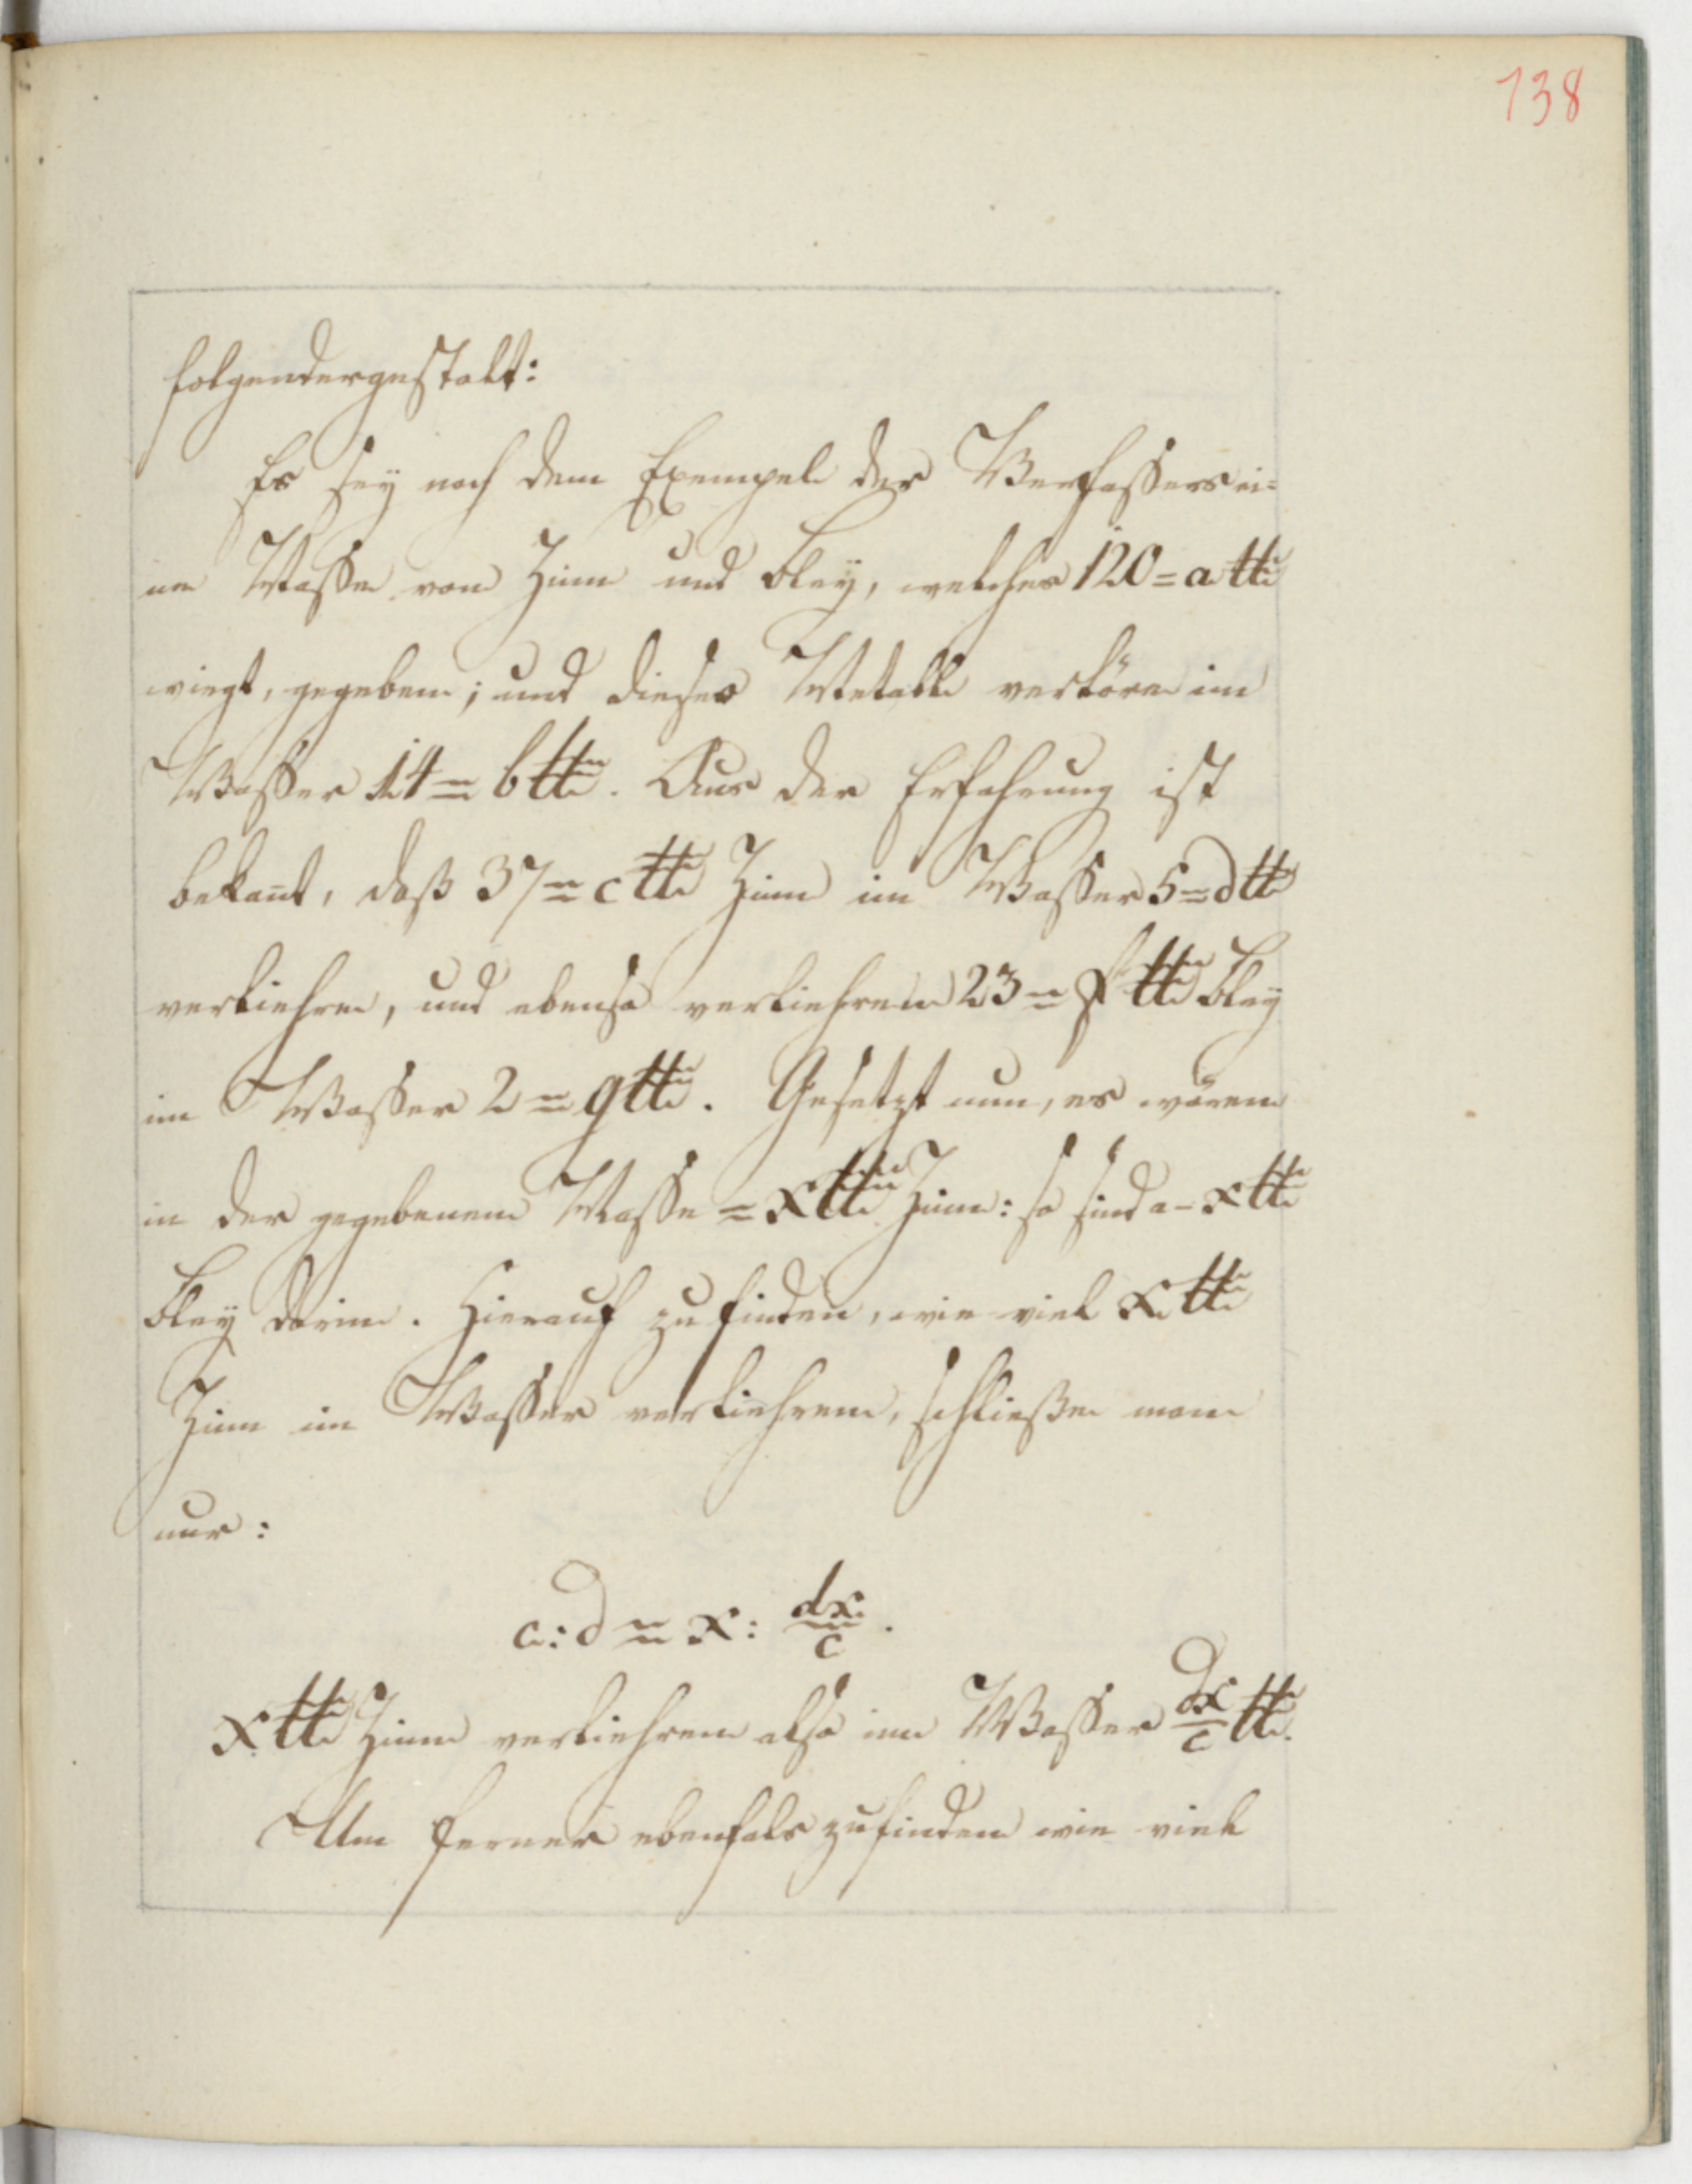 138
folgendergestalt:
Es sey nach dem Exempel des Verfassers ei=
ne Masse von Zinn und Bley, welches 120 = a ℔
wiegt, gegeben; und dieses Metall verlöre im
Wasser 14 = b ℔. Aus der Erfahrung ist
bekant, daß 37 = c ℔ Zinn im Wasser 5 = d ℔
verliehren, und ebenso verliehren 23 = f ℔ Bley
im Wasser 2 = g ℔. Gesetzt nun, es wären
in der gegebenen Masse = x ℔ Zinn: so sind a - x ℔
Bley darin. Hierauf zu finden, wie viel x ℔
Zinn im Wasser verliehren, schließe man
nur:
c : d = x : dx/c.
x ℔ Zinn verliehren also im Wasser dx/c ℔.
Um ferner ebenfals zu finden wie viel